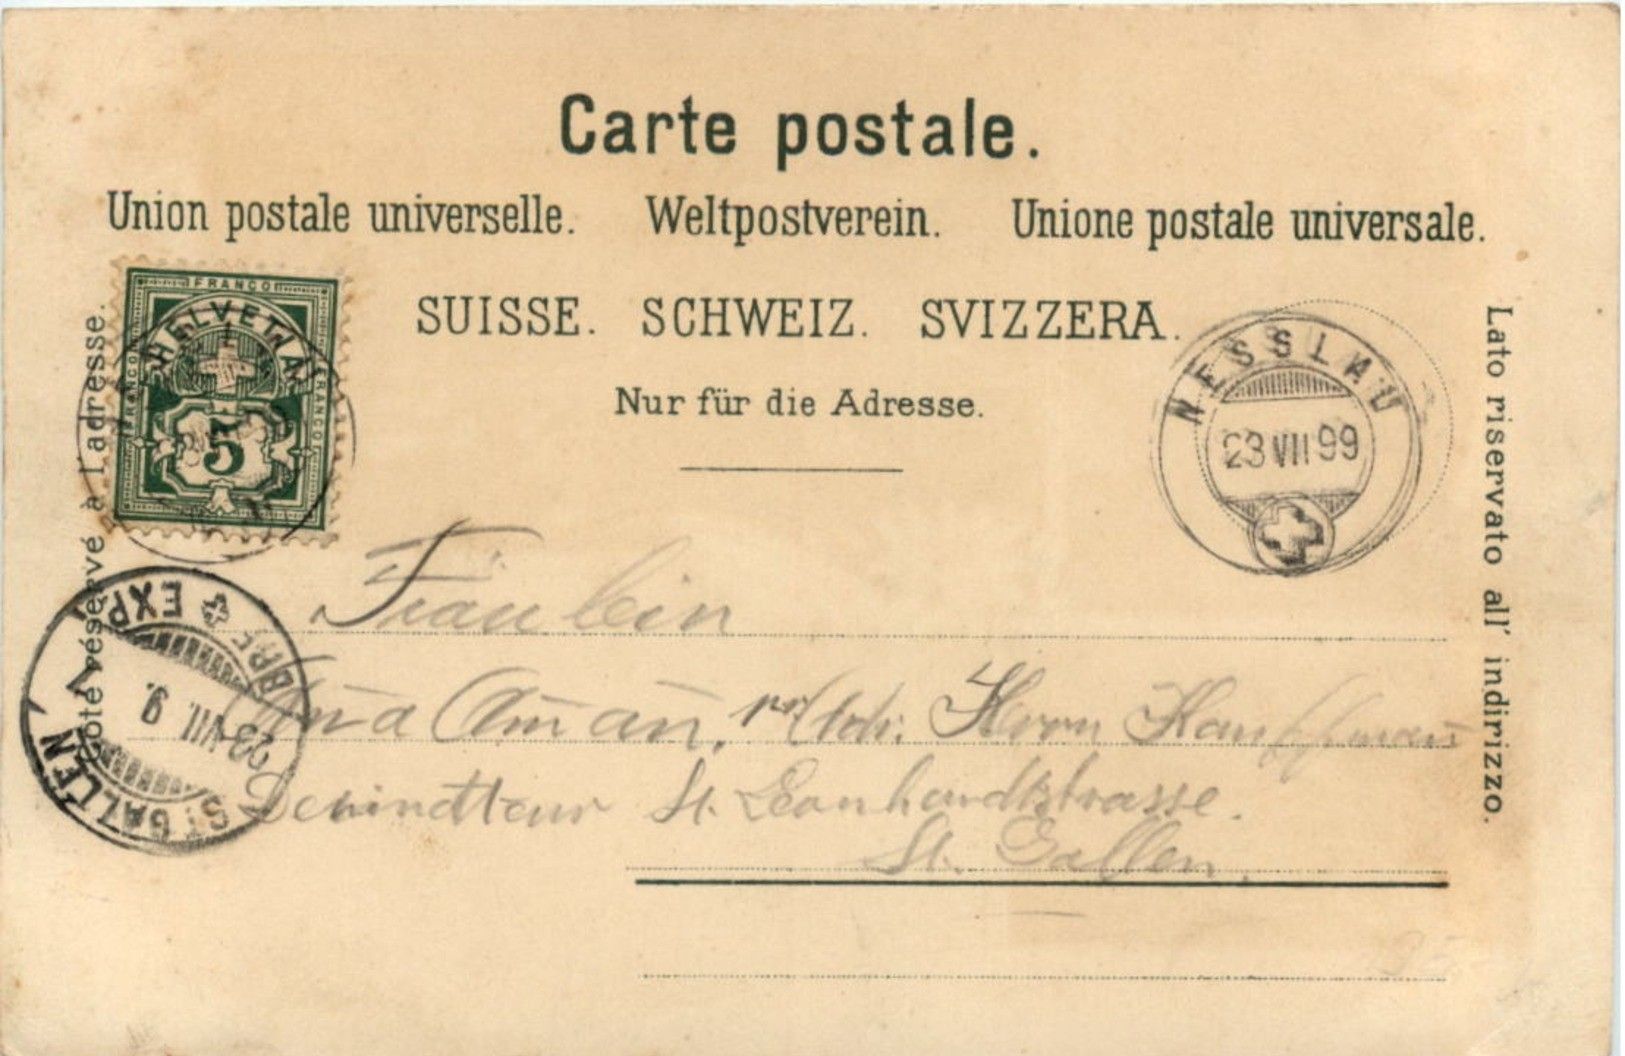 Carte postale.
Union postale universelle. Weltpostverein. Unione postale universale.
SUISSE. SCHWEIZ. SVIZZERA.
Nur für die Adresse.
Côté réservé à l'adresse.
Lato riservato all' indirizzo.
FRANCO
FRANCO
FRANCO
HELVETIA
5
NESSLAU
23 VII 99
ST. GALLEN
23 VII. 9
BRF. EXP.
Fräulein
Herrn
St. Leonhardtstrasse.
St. Gallen.